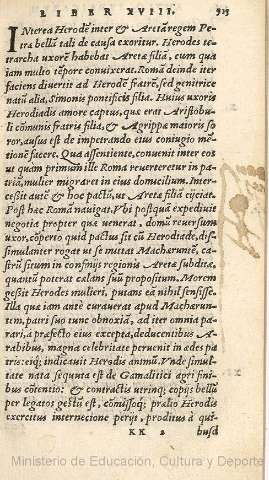 LIBER XVIII. 923
INterea Herodẽ inter & Aretã regem Pe
tra bellũ tali de causa exoritur. Herodes te-
trarcha uxorẽ habebat Aretæ filiã, cum qua
iam multo tẽpore conuixerat. Romã deinde iter
faciens diuertit ad Herodẽ fratrẽ, sed genitrice
natũ alia, Simonis pontificis filia. Huius uxoris
Herodiadis amore captus, quæ erat Aristobu-
li cõmunis fratris filia, & Agrippæ maioris so
ror, ausus est de impetrando eius coniugio me-
tionẽ facere. Qua assentiente, conuenit inter eos
ut quam primum ille Roma reuerteretur in pa-
tria, mulier migraret in eius domicilium. Inter-
cessit autẽ & hoc pactũ, ut Aretæ filia eijciatur.
Post hæc Romã nauigat. Vbi postquã expediuit
negotia propter quæ uenerat, domũ reuersum
uxor, cõperto quid pactus sit cũ Herodiade, dis-
simulanter rogat ut se mittat Machæruntẽ, ca-
strũ situm in confinijs regionis Aretæ subditæ,
quantũ poterat celans suũ propositum. Morem
gessit Herodes mulieri, putans eã nihil sensisse.
Illa quæ iam antè curauerat apud Machærun-
tem, patri suo tunc obnoxiã, ad iter omnia pa-
rari, à præfecto eius excepta, deducentibus A-
rabibus, magna celebritate peruenit in ædes pa
tris: eiq; indicauit Herodis animũ. Vnde simul-
tate nata sequuta est de Gamalitici agri fini-
bus cõtentio: & contractis utrinq; copijs bellũ
per legatos gestũ est, cõmissoq; prælio Herodis
exercitus internecione perijt, proditus à qui-
KK 2 busd
Ministerio de Educación, Cultura y Deporte